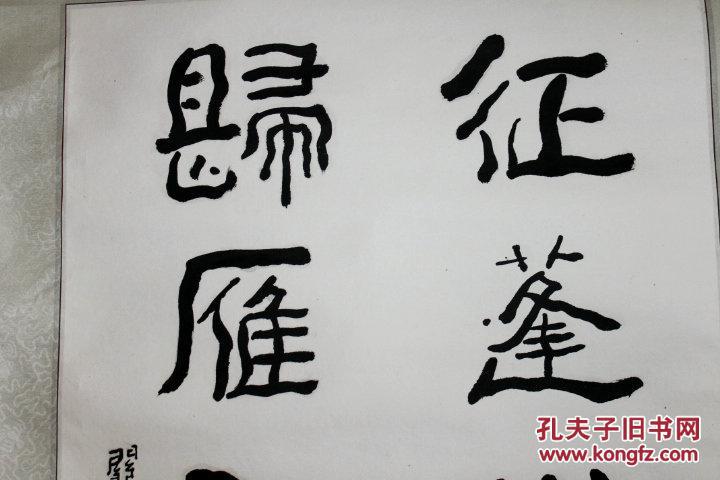 征蓬
歸雁
孔夫子旧书网
www.kongfz.com